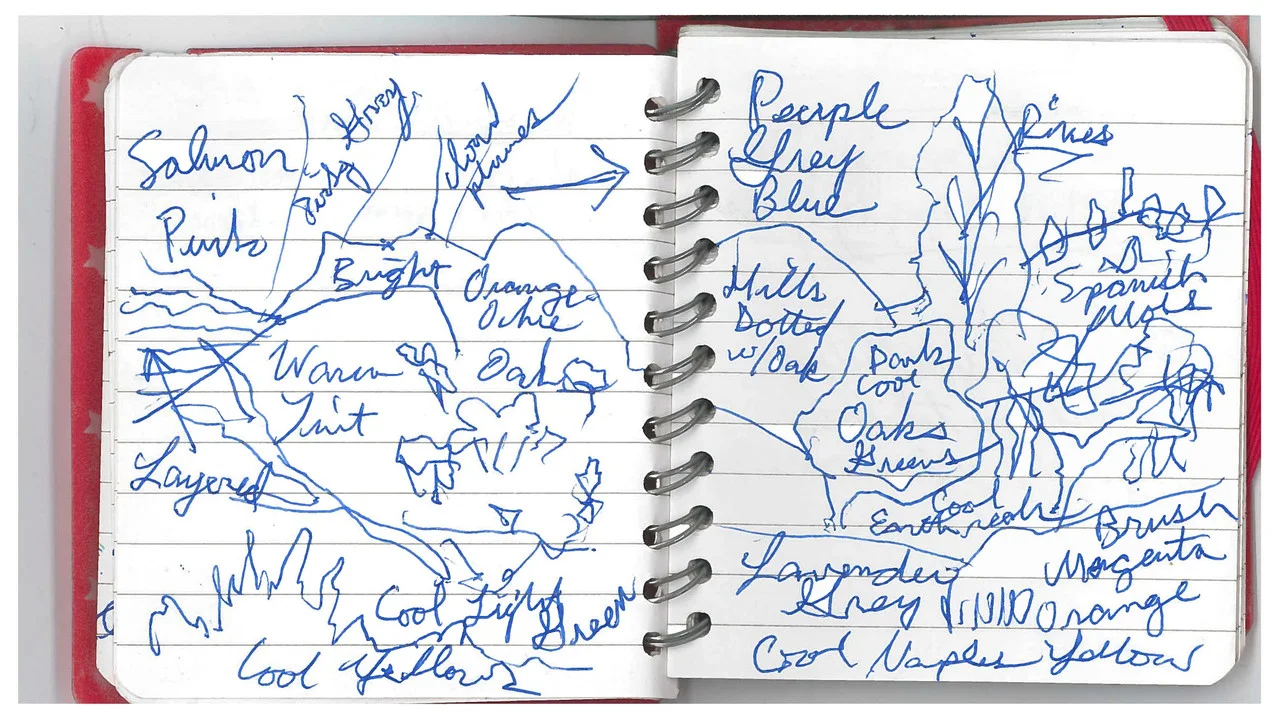 Salmon
Pinks
Grey
cloud
plumes
Bright
Orange
Ochre
Warm
Tint
Oak
Layered
Cool Light
Green
Cool Yellows
Purple
Grey
Blue
Pines
Spanish
Moss
Hills
Dotted
w/Oak
Dark
Cool
Oaks
Greens
Cool
Earth reds
Brush
Magenta
Orange
Lavender
Grey
Cool Naples Yellow